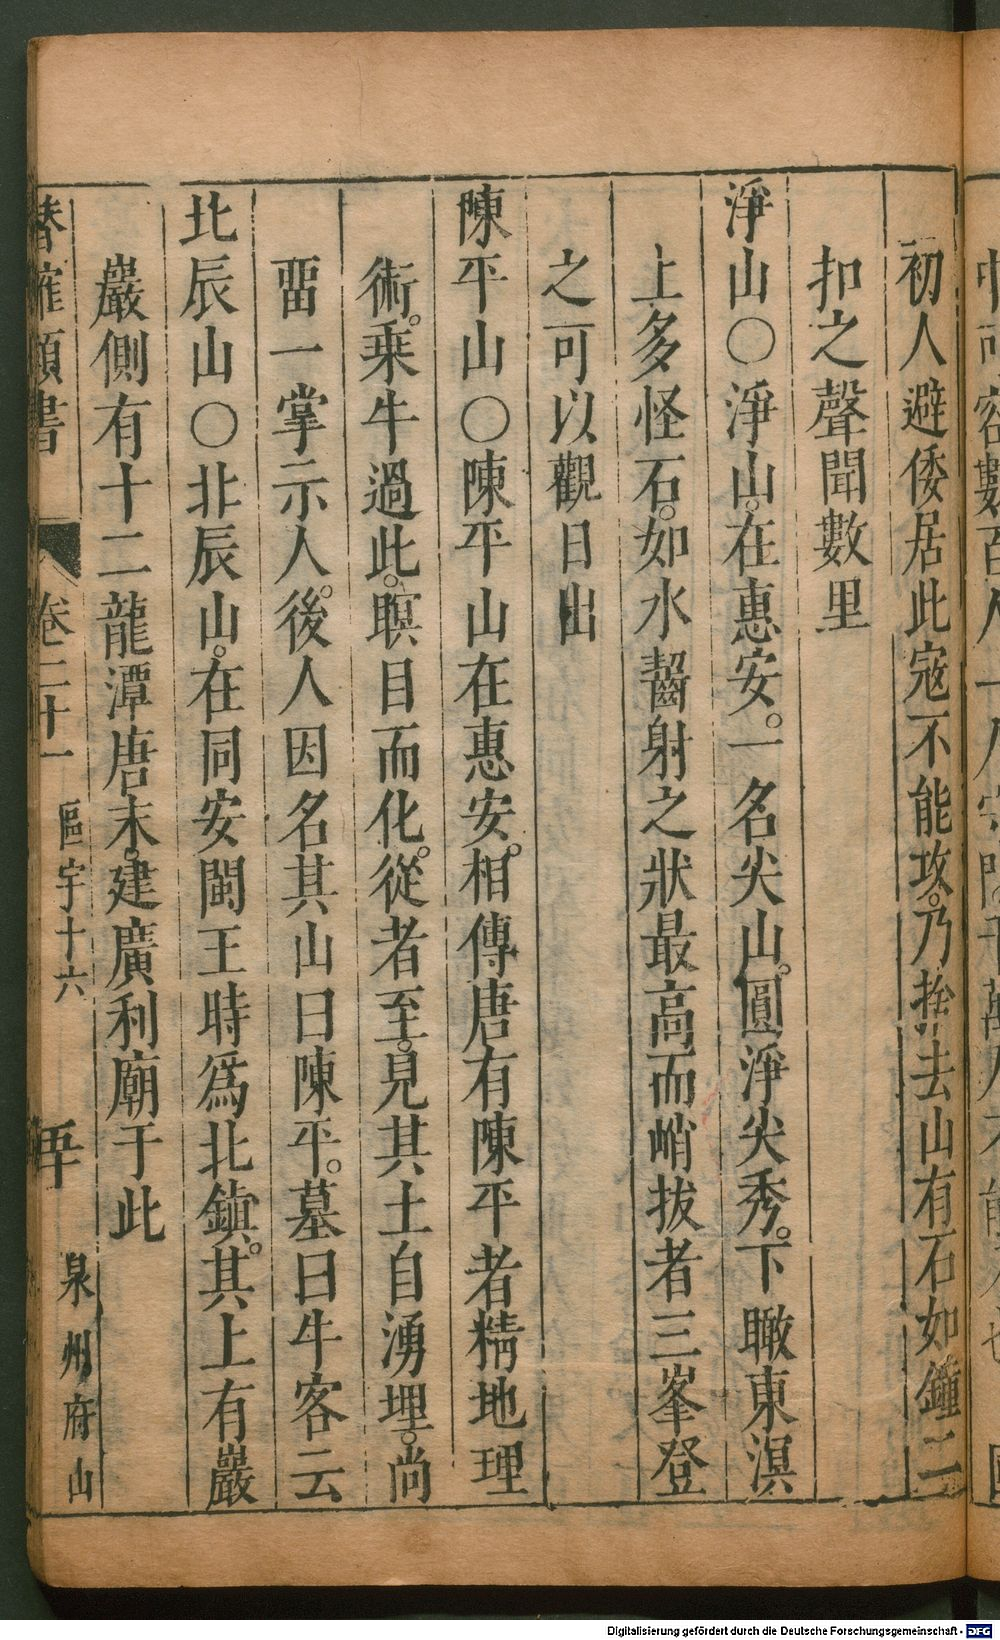 初人避倭居此寇不能攻乃捨去山有石如鐘二
扣之聲聞數里
淨山○淨山在惠安。一名尖山。圓淨尖秀。下瞰東溟
上多怪石。如水齧射之狀最高而峭拔者三峯登
之可以觀日出
陳平山○陳平山在惠安。相傳唐有陳平者精地理
術。乘牛過此。暝目而化。從者至。見其土自湧埋。尚
畱一掌示人。後人因名其山曰陳平。墓曰牛客云
北辰山○北辰山。在同安閩王時爲北鎮。其上有巖
巖側有十二龍潭唐末。建廣利廟于此
潛確類書 卷二十一 區宇十六 五十 泉州府山
Digitalisierung gefördert durch die Deutsche Forschungsgemeinschaft - DFG